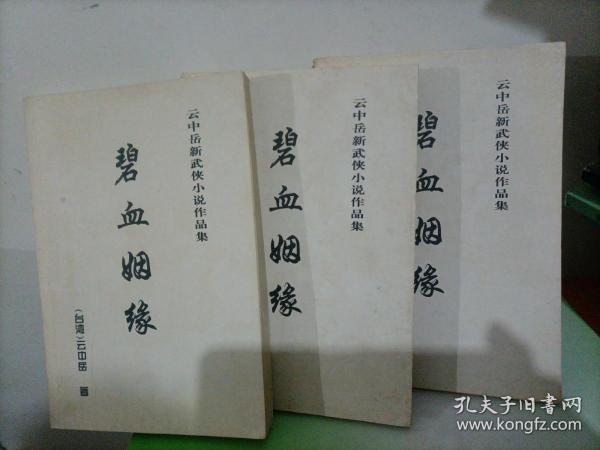 云中岳新武侠小说作品集
碧血姻缘
(台湾)云中岳 著
云中岳新武侠小说作品集
碧血姻缘
云中岳新武侠小说作品集
碧血姻缘
孔夫子旧书网
www.kongfz.com